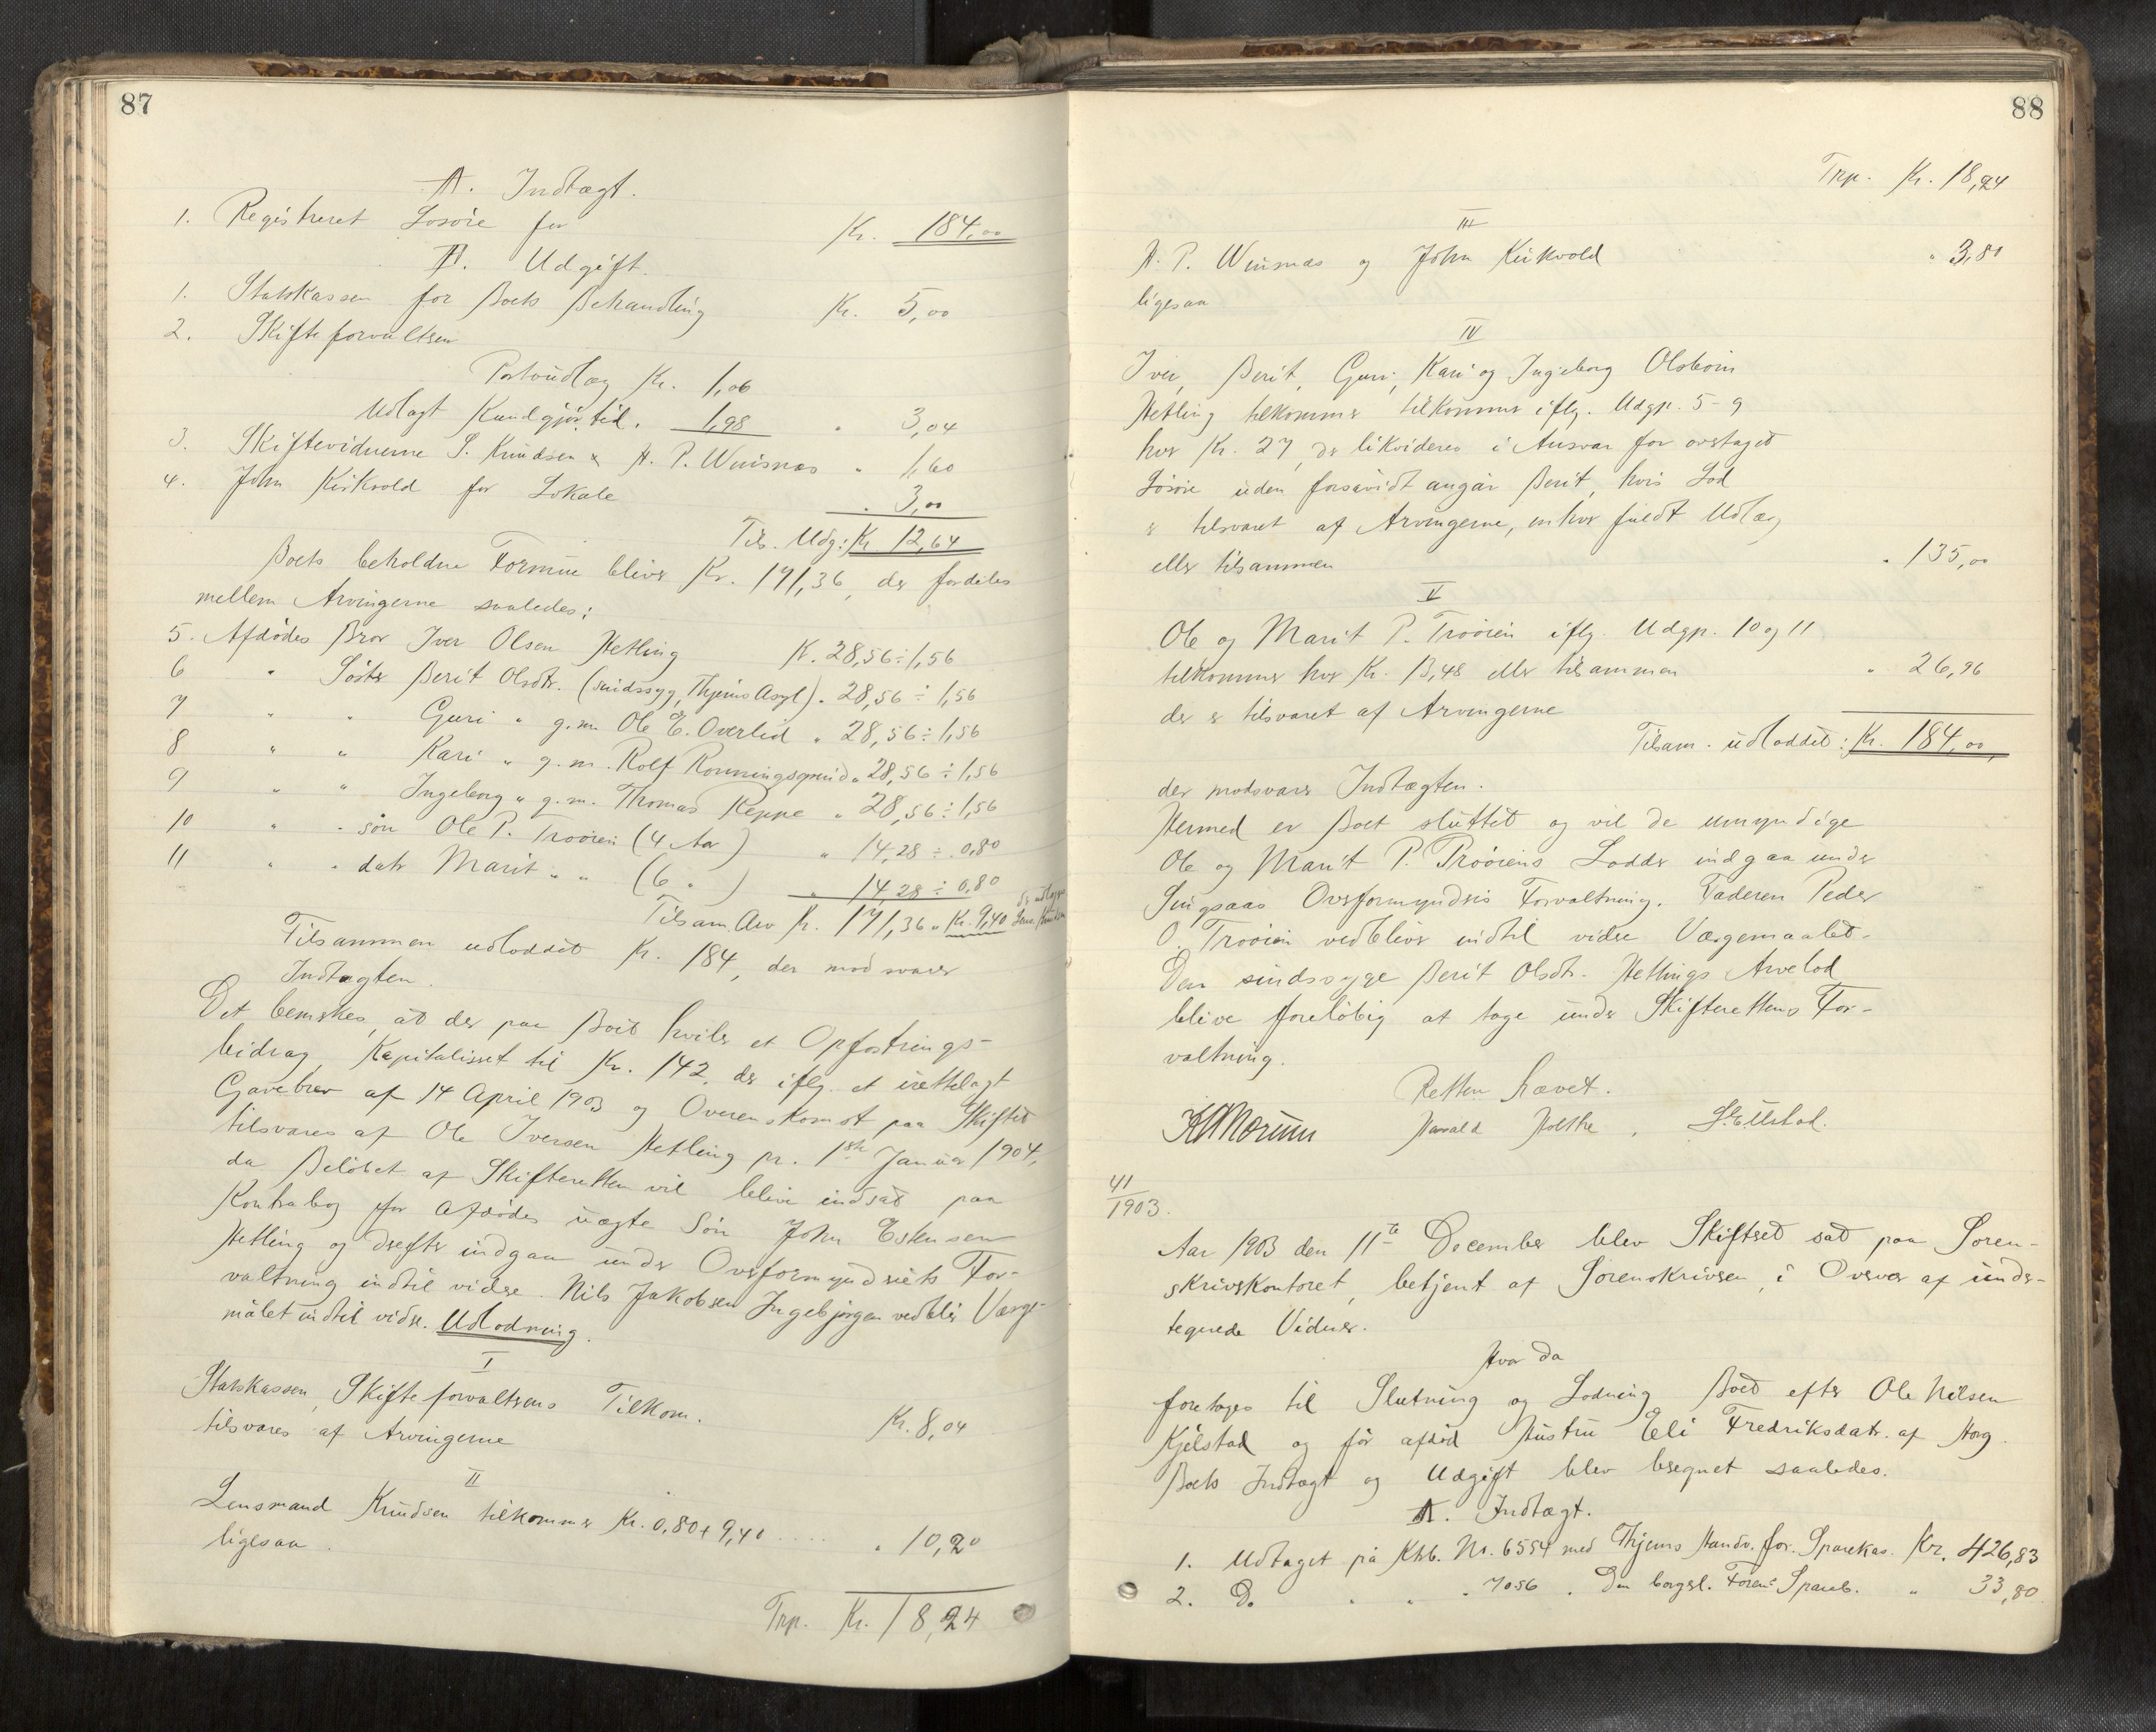 87
A. Indtægt.
1. Registreret Losøre for Kr. 184,00
B. Udgift.
1. Statskassen for Boets Behandling Kr. 5,00
2. Skifteforvalteren
Portoudlæg Kr. 1,06
Udlagt Kundgjør.tid. 1,98 " 3,04
3. Skiftevidnerne S. Knudsen & A. P. Winsnæs " 1,60
4. John Kirkvold for Lokale " 3,00
Tils. Udg: Kr 12,64
Boets beholdne Formue bliver Kr. 171,36, der fordeles
mellem Arvingerne saaledes:
5. Afdødes Bror Iver Olsen Hetling K. 28,56 ÷ 1,56
6 " Søster Berit Olsdtr. (sindssyg, Thjems Asyl) " 28,56 ÷ 1,56
7 " " Guri " g.m. Ole E. Overlid " 28,56 ÷ 1,56
8 " " Kari " g.m. Rolf Rønningsgrind " 28,56 ÷ 1,56
9 " " Ingeborg " g.m. Thomas Reppe " 28,56 ÷ 1,56
10 " " søn Ole P. Trøøien (4 Aar) " 14,28 ÷ 0,80
11 " " datr Marit " " (6 " ) " 14,28 ÷ 0,80
Tilsam. Arv Kr. 171,36 " Kr. 9,40
Tilsammen udloddet Kr. 184, der modsvarer
Indtægten.
Det bemerkes, at der paa Boet hviler et Opfostrings-
bidrag, Kapitaliseret til Kr. 142, der iflg. et irettelagt
Gavebrev af 14 April 1903 og Overenskomst paa Skiftet
tilsvares af Ole Iversen Hetling pr. 1ste Januar 1904,
da Beløbet af Skifteretten vil blive indsat paa
Kontrabog for Afdødes uægte Søn John Estensen
Hetling og derefter indgaa under Overformynderiets For-
valtning indtil videre. Nils Jakobsen Ingebjørgen vedblir Værge-
målet indtil videre. Udlodning.
I
Statskassen, Skifteforvalterens Tilkom.
tilsvares af Arvingerne Kr. 8,04
II
Lensmand Knudsen tilkommer Kr. 0,80 + 9,40 ..... " 10,20
ligesaa.
Trp. Kr. 18,24
88
Trp. Kr. 18,24
III
A. P. Winsnæs og John Kirkvold " 3,80
ligesaa
IV
Iver, Berit, Guri, Kari og Ingeborg Olsbørn
Hetling tilkommer tilkommer iflg. Udgp. 5-9
hver Kr. 27, der likvideres i Ansvar for overtaget
Løsøre uden forsåvidt angår Berit, hvis Lod
er tilsvaret af Arvingerne, enhver fuldt Udlæg
eller tilsammen " 135,00
V
Ole og Marit P. Trøøien iflg. Udgp. 10 og 11
tilkommer hver Kr. 13,48 eller tilsammen " 26,96
der er tilsvaret af Arvingerne
Tilsam. udloddet: Kr. 184,00
der modsvarer Indtægten.
Hermed er Boet sluttet og vil de umyndige
Ole og Marit P. Trøøiens Lodder indgaa under
Singsaas Overformynderis Forvaltning. Faderen Peder
O. Trøøien vedbliver indtil videre Værgemaalet.
Den sindssyge Berit Olsdtr. Hetlings Arvelod
blive foreløbig at tage under Skifterettens For-
valtning.
Retten hævet.
Harald Holthe.
41
1903.
Aar 1903 den 11te December blev Skifteret sat paa Soren-
skriverkontoret, betjent af Sorenskriveren, i Overvær af under-
tegnede Vidner.
Hvor da
foretoges til Slutning og Lodning Boet efter Ole Nilsen
Kjelstad og før afdød Hustru Eli Fredriksdatr. af Horg.
Boets Indtægt og Udgift blev beregnet saaledes.
A. Indtægt.
1. Udtaget på Ktb. No. 6554 med Thjems Handv. for. Sparekas. Kr. 426,83
2. Do " " " 7056 " Den borgerl. Foren. Spareb. " 33,80